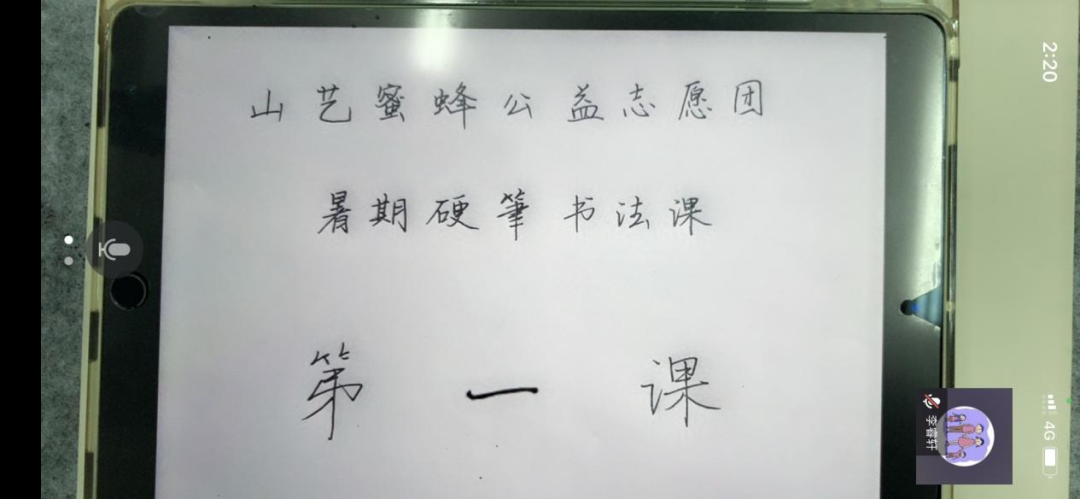 山艺蜜蜂公益志愿团
暑期硬筆书法课
第一课
2:20
4G
李睿轩